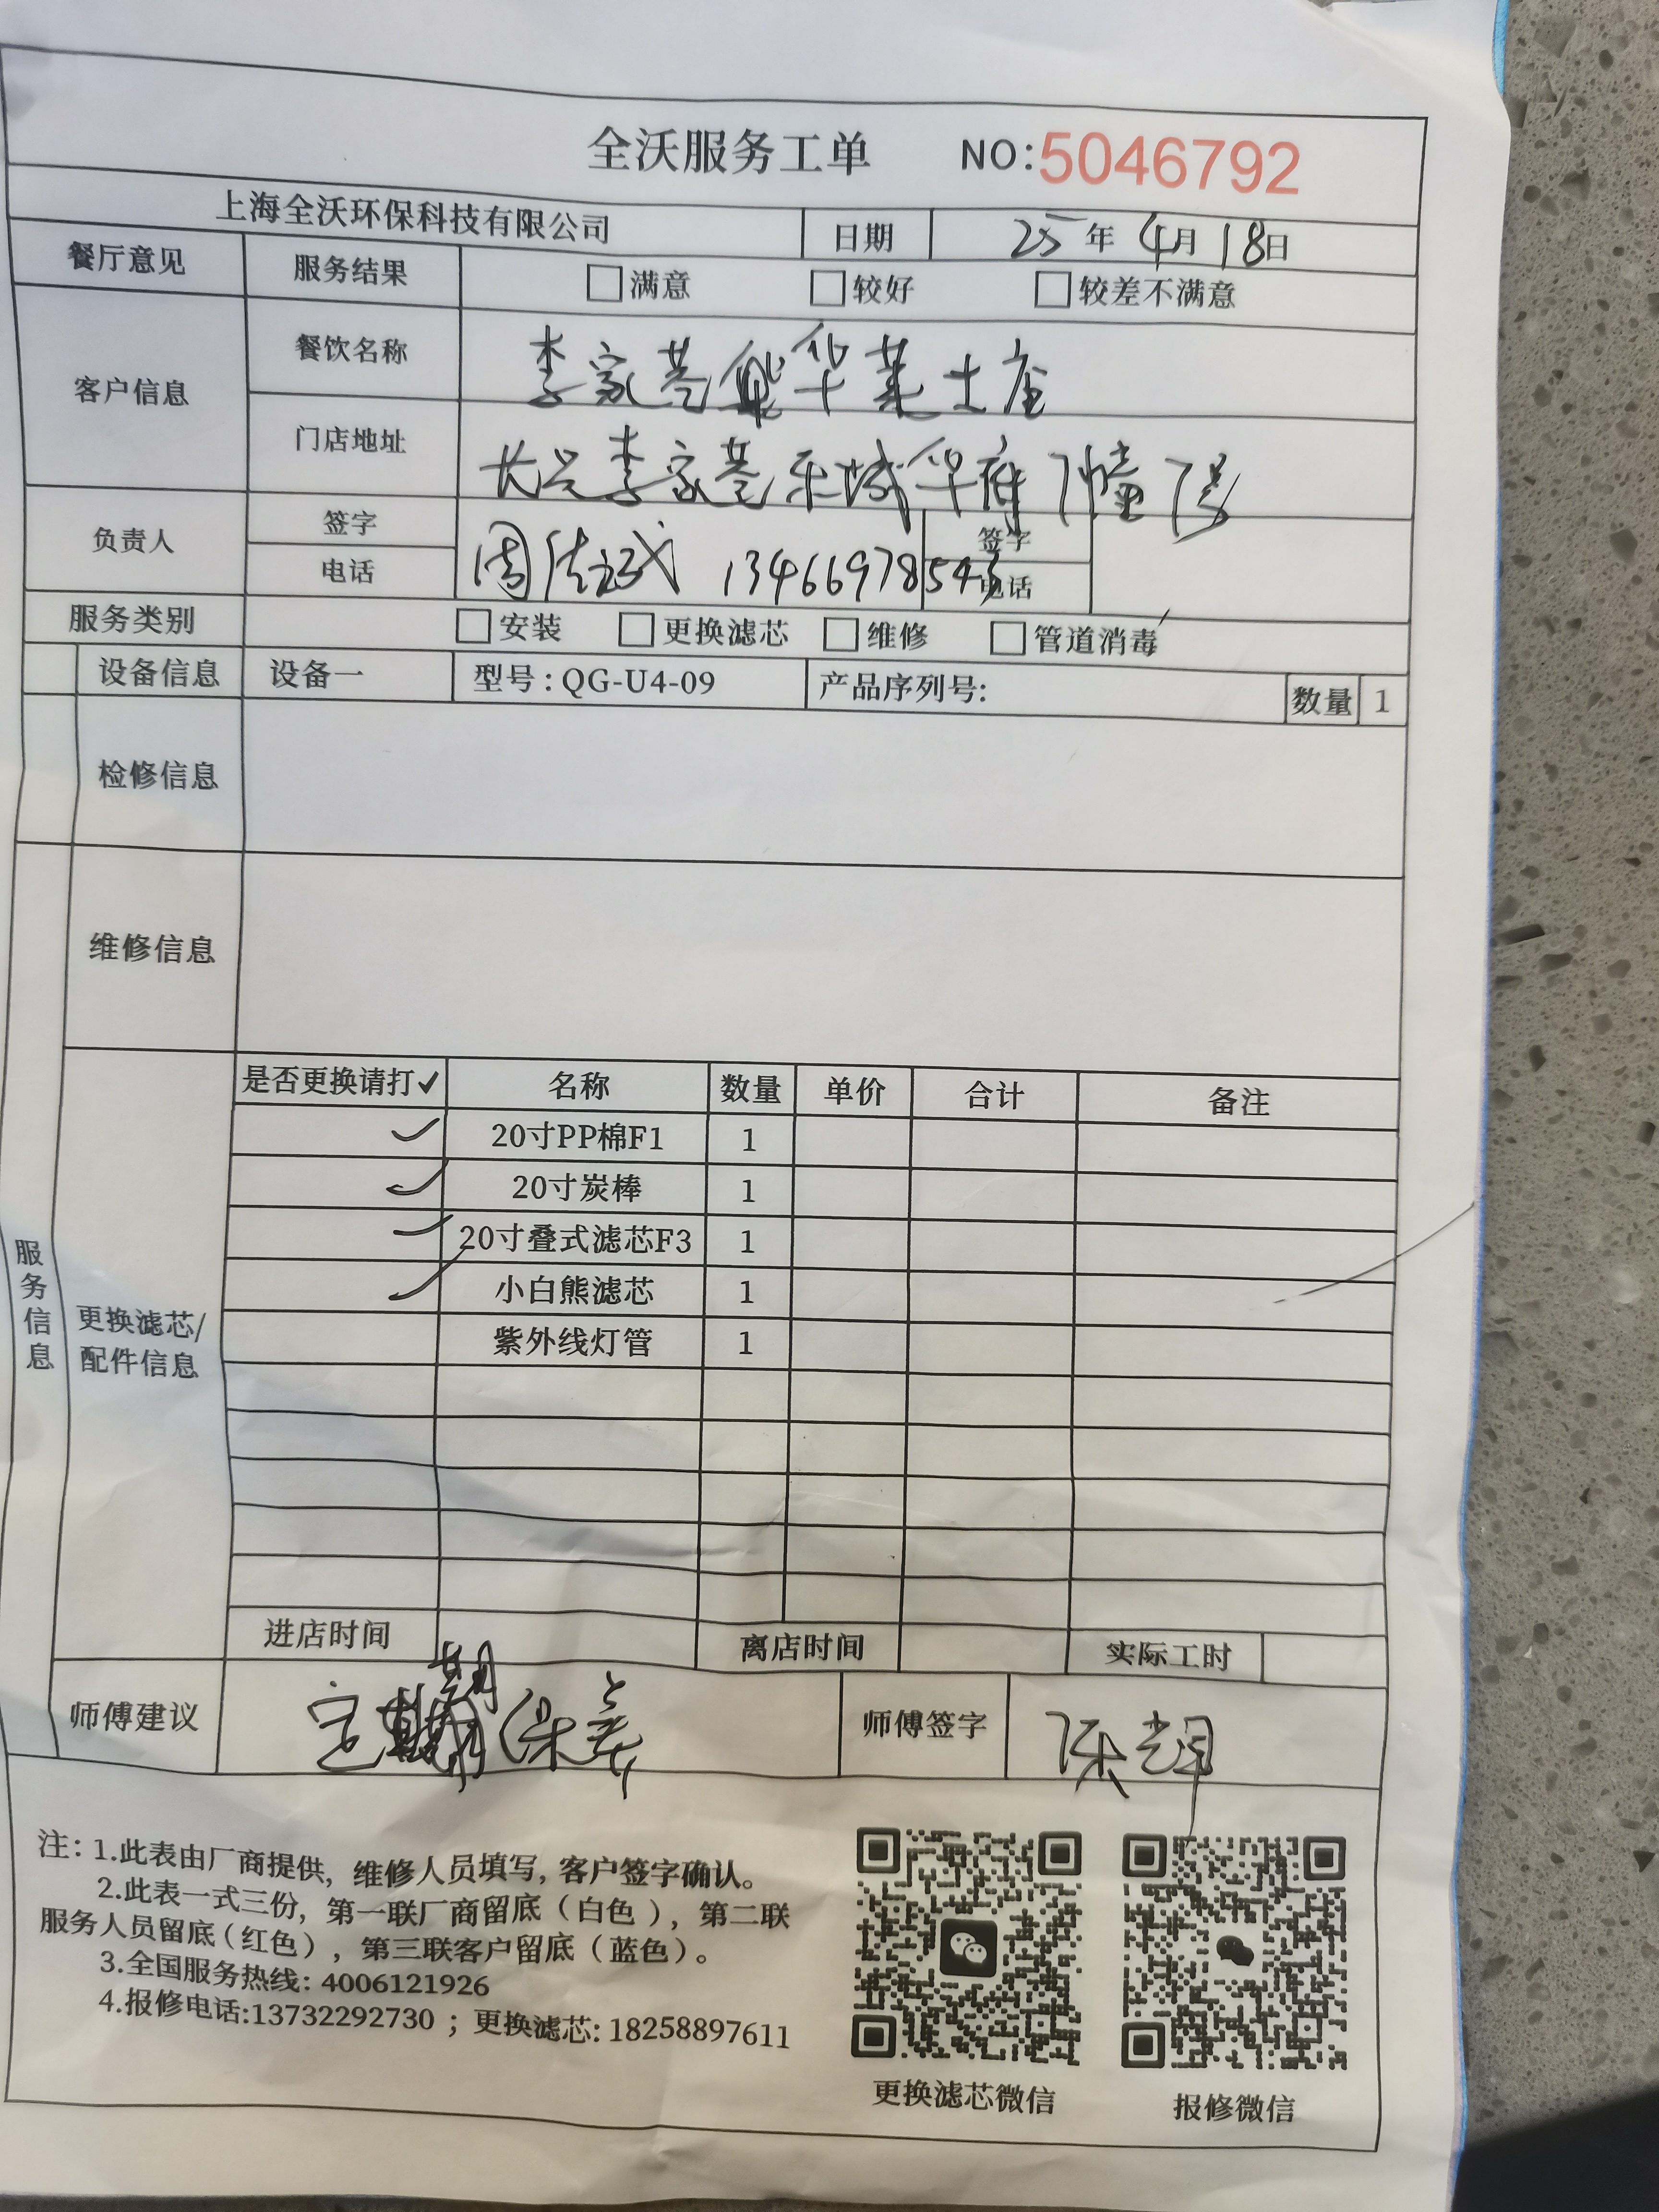 全沃服务工单 NO:5046792
上海全沃环保科技有限公司 日期 25年4月18日
餐厅意见 服务结果 □满意 □较好 □较差不满意
客户信息 餐饮名称 李家巷 华莱士店
门店地址 长兴李家巷乐城华府7幢7号
负责人 签字 周 斌 签字
电话 1346697854 电话
服务类别 □安装 □更换滤芯 □维修 □管道消毒
设备信息 设备一 型号:QG-U4-09 产品序列号: 数量 1
检修信息
维修信息
服务信息
更换滤芯/
配件信息
是否更换请打✓ 名称 数量 单价 合计 备注
✓ 20寸PP棉F1 1
✓ 20寸炭棒 1
✓ 20寸叠式滤芯F3 1
✓ 小白熊滤芯 1
紫外线灯管 1
进店时间 离店时间 实际工时
师傅建议 定期保养 师傅签字 陈
注: 1.此表由厂商提供, 维修人员填写, 客户签字确认。
2.此表一式三份, 第一联厂商留底(白色), 第二联
服务人员留底(红色), 第三联客户留底(蓝色)。
3.全国服务热线: 4006121926
4.报修电话:13732292730 ; 更换滤芯: 18258897611
更换滤芯微信 报修微信